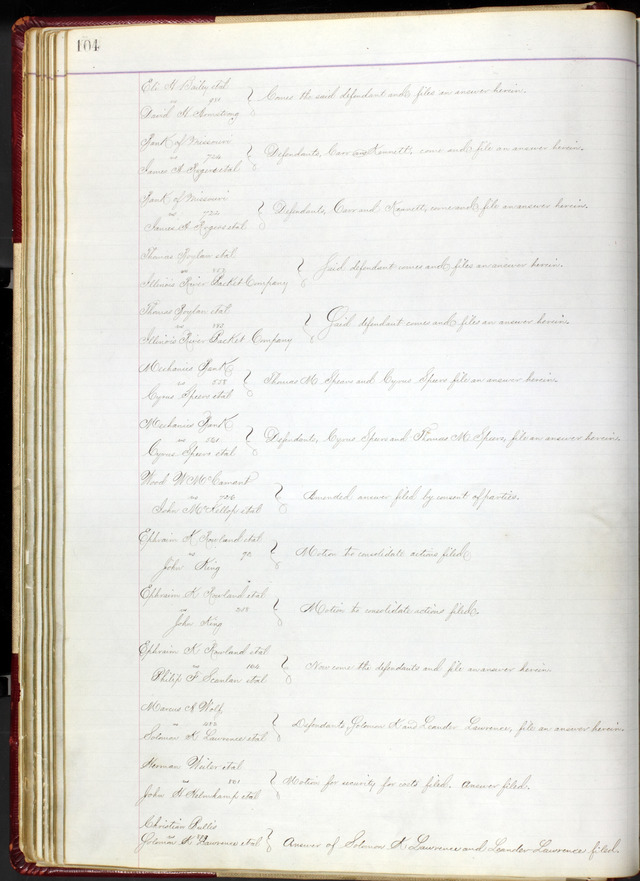 104
Eli H Bailey etal
vs
David H. Armstrong } Comes the said defendant and files an answer herein.
Bank of Missouri
vs 724
James A Rogers etal } Defendants, Carr and Kennett, come and file an answer herein.
Bank of Missouri
vs 722
James A Rogers etal } Defendants, Carr and Kennett, come and file an answer herein.
Thomas Boylan etal
vs
Illinois River Packet Company } Said defendant comes and files an answer herein.
Thomas Boylan etal
vs
Illinois River Packet Company } Said defendant comes and files an answer herein.
Mechanics Bank
vs 538
Cyrus Speers etal } Thomas M. Speers and Cyrus Speers file an answer herein.
Mechanics Bank
vs
Cyrus Speers etal } Defendants, Cyrus Speers and Thomas M. Speers, file an answer herein.
Wood W McCamant
vs 726
John McKillop etal } Amended answer filed by consent of parties.
Ephraim K Rowland etal
vs 70
John King } Motion to consolidate actions filed
Ephraim K Rowland etal
vs
John King } Motion to consolidate actions filed.
Ephraim K Rowland etal
vs
Philip F Scanlan etal } Now come the defendants and file an answer herein
Marcus A Wolf
vs
Solomon K Lawrence etal } Defendants, Solomon K and Leander Lawrence, file an answer herein.
Herman Weiler etal
vs 801
John H Helmkamp etal } Motion for security for costs filed. Answer filed.
Christian Pullis
vs
Solomon K Lawrence etal } Answer of Solomon K Lawrence and Leander Lawrence filed.